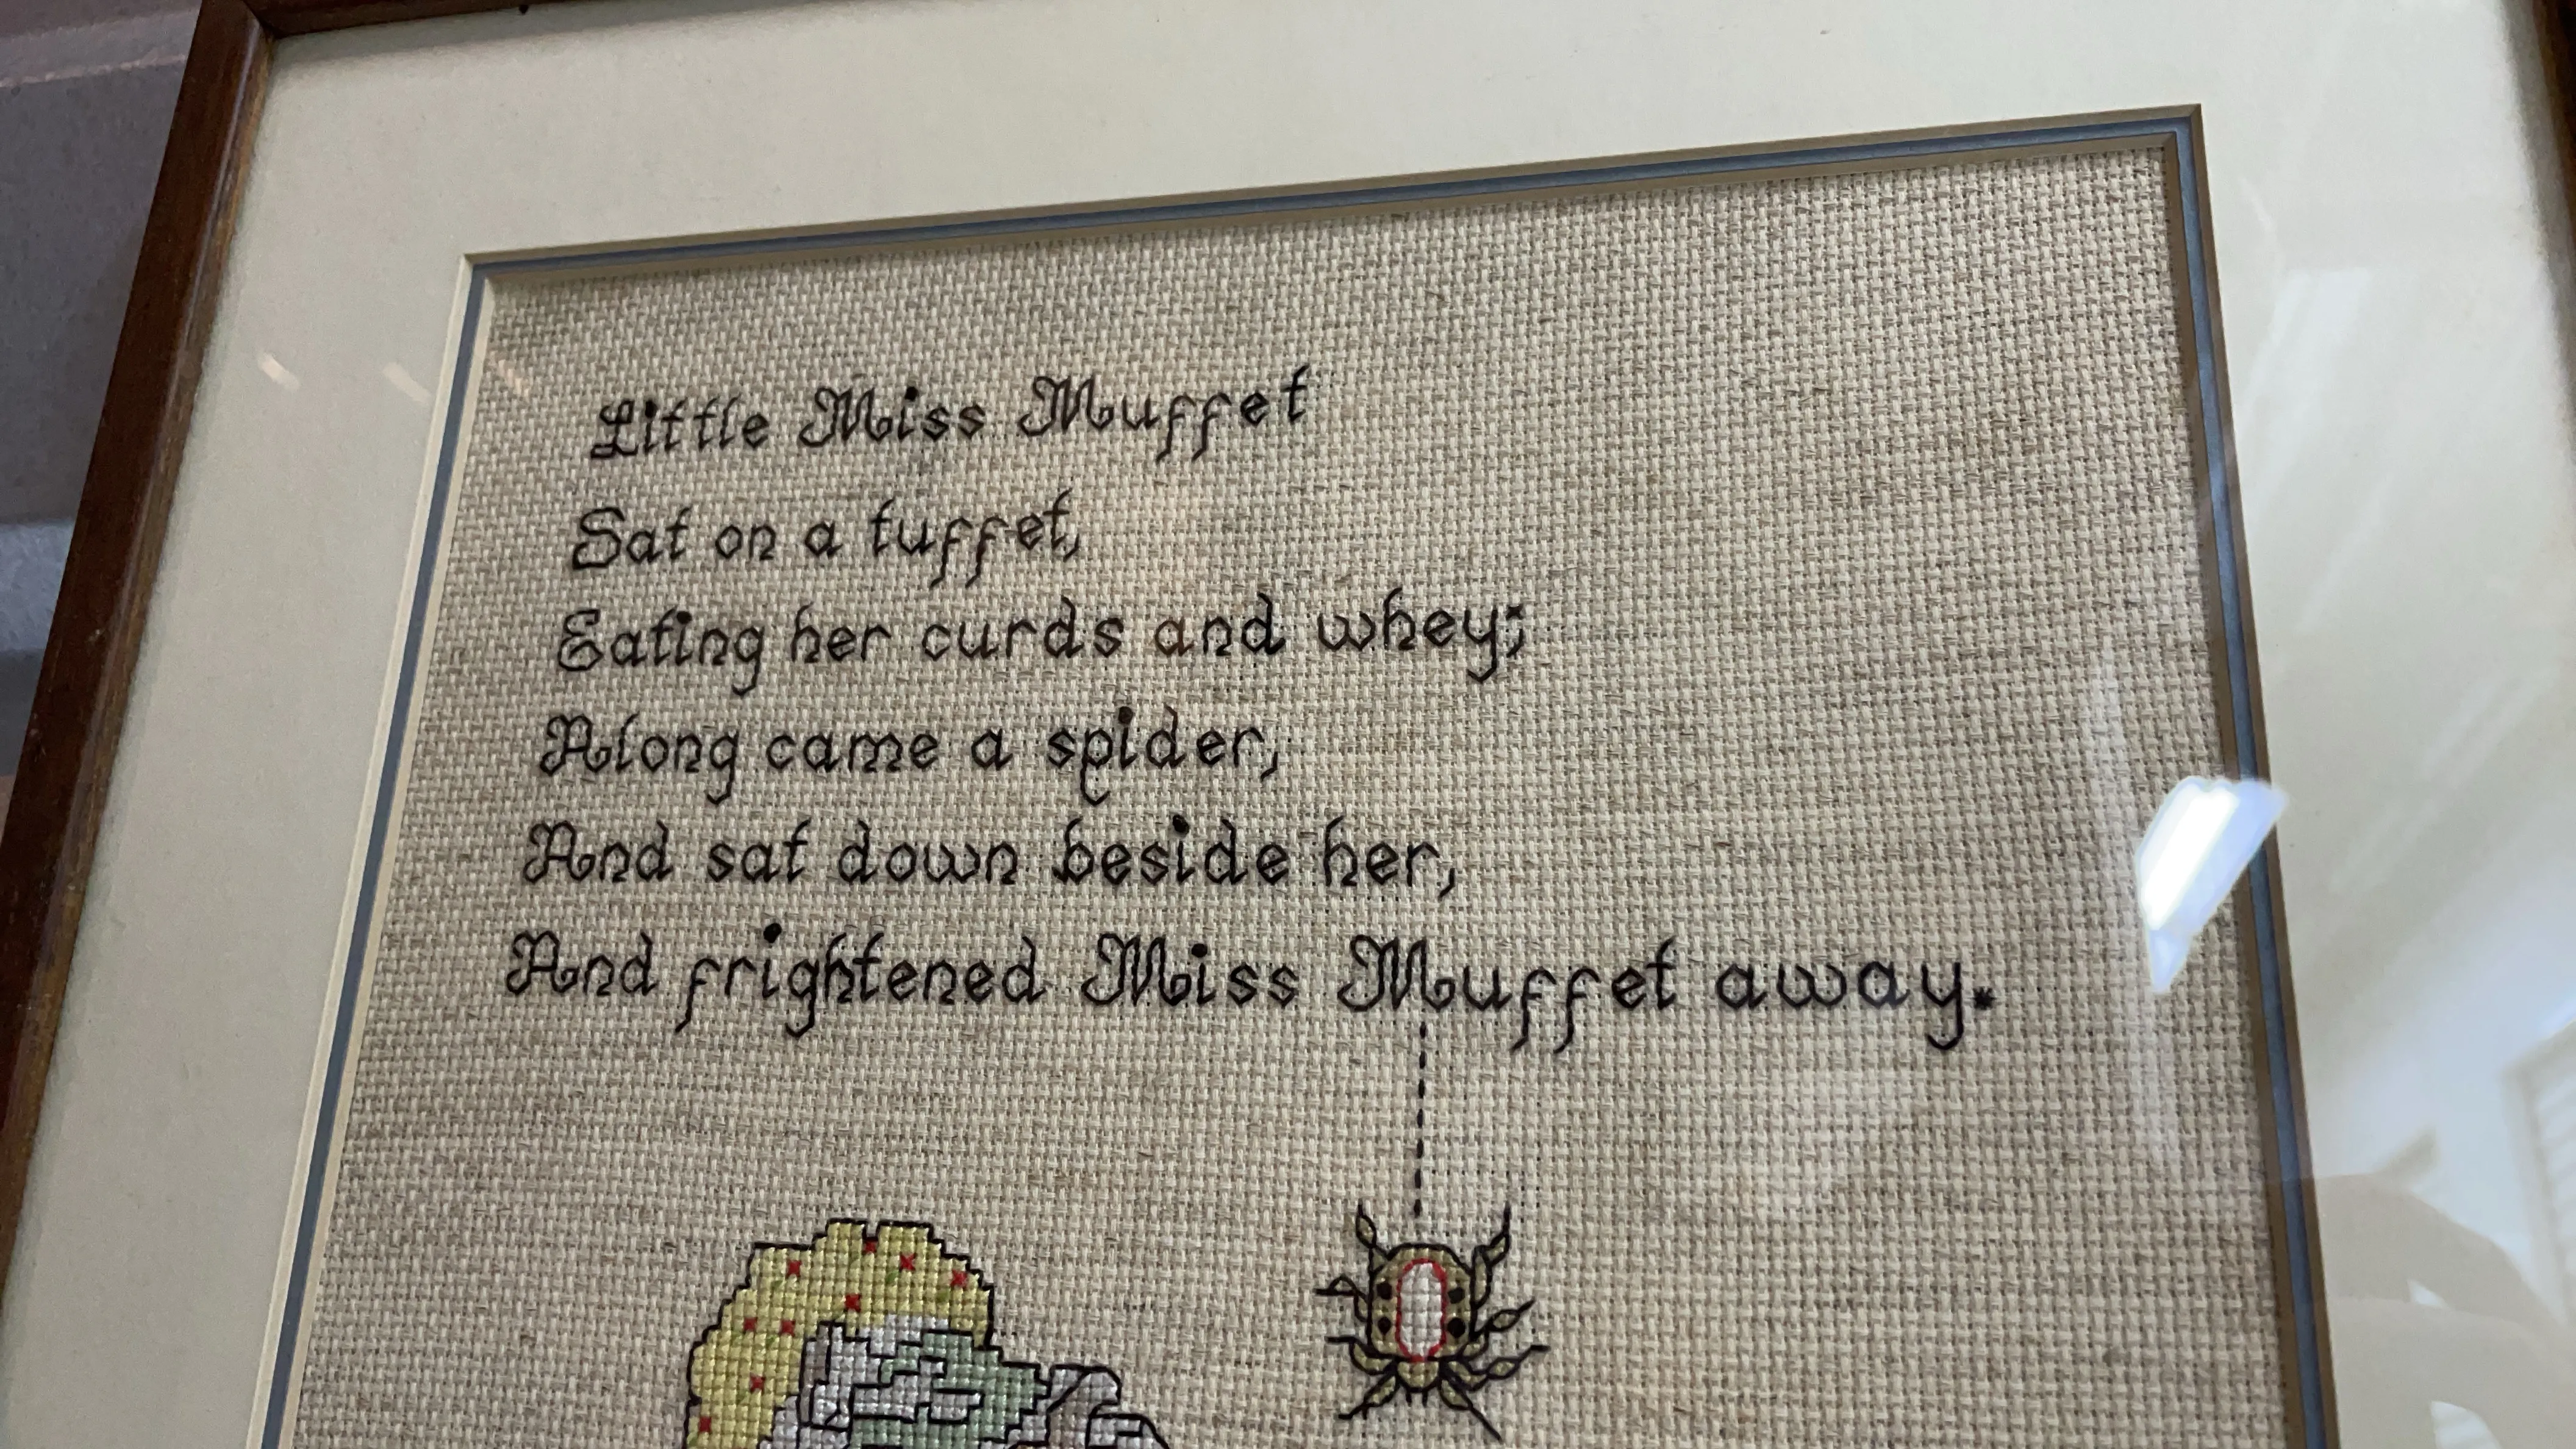 Little Miss Muffet
Sat on a tuffet,
Eating her curds and whey;
Along came a spider,
And sat down beside her,
And frightened Miss Muffet away.